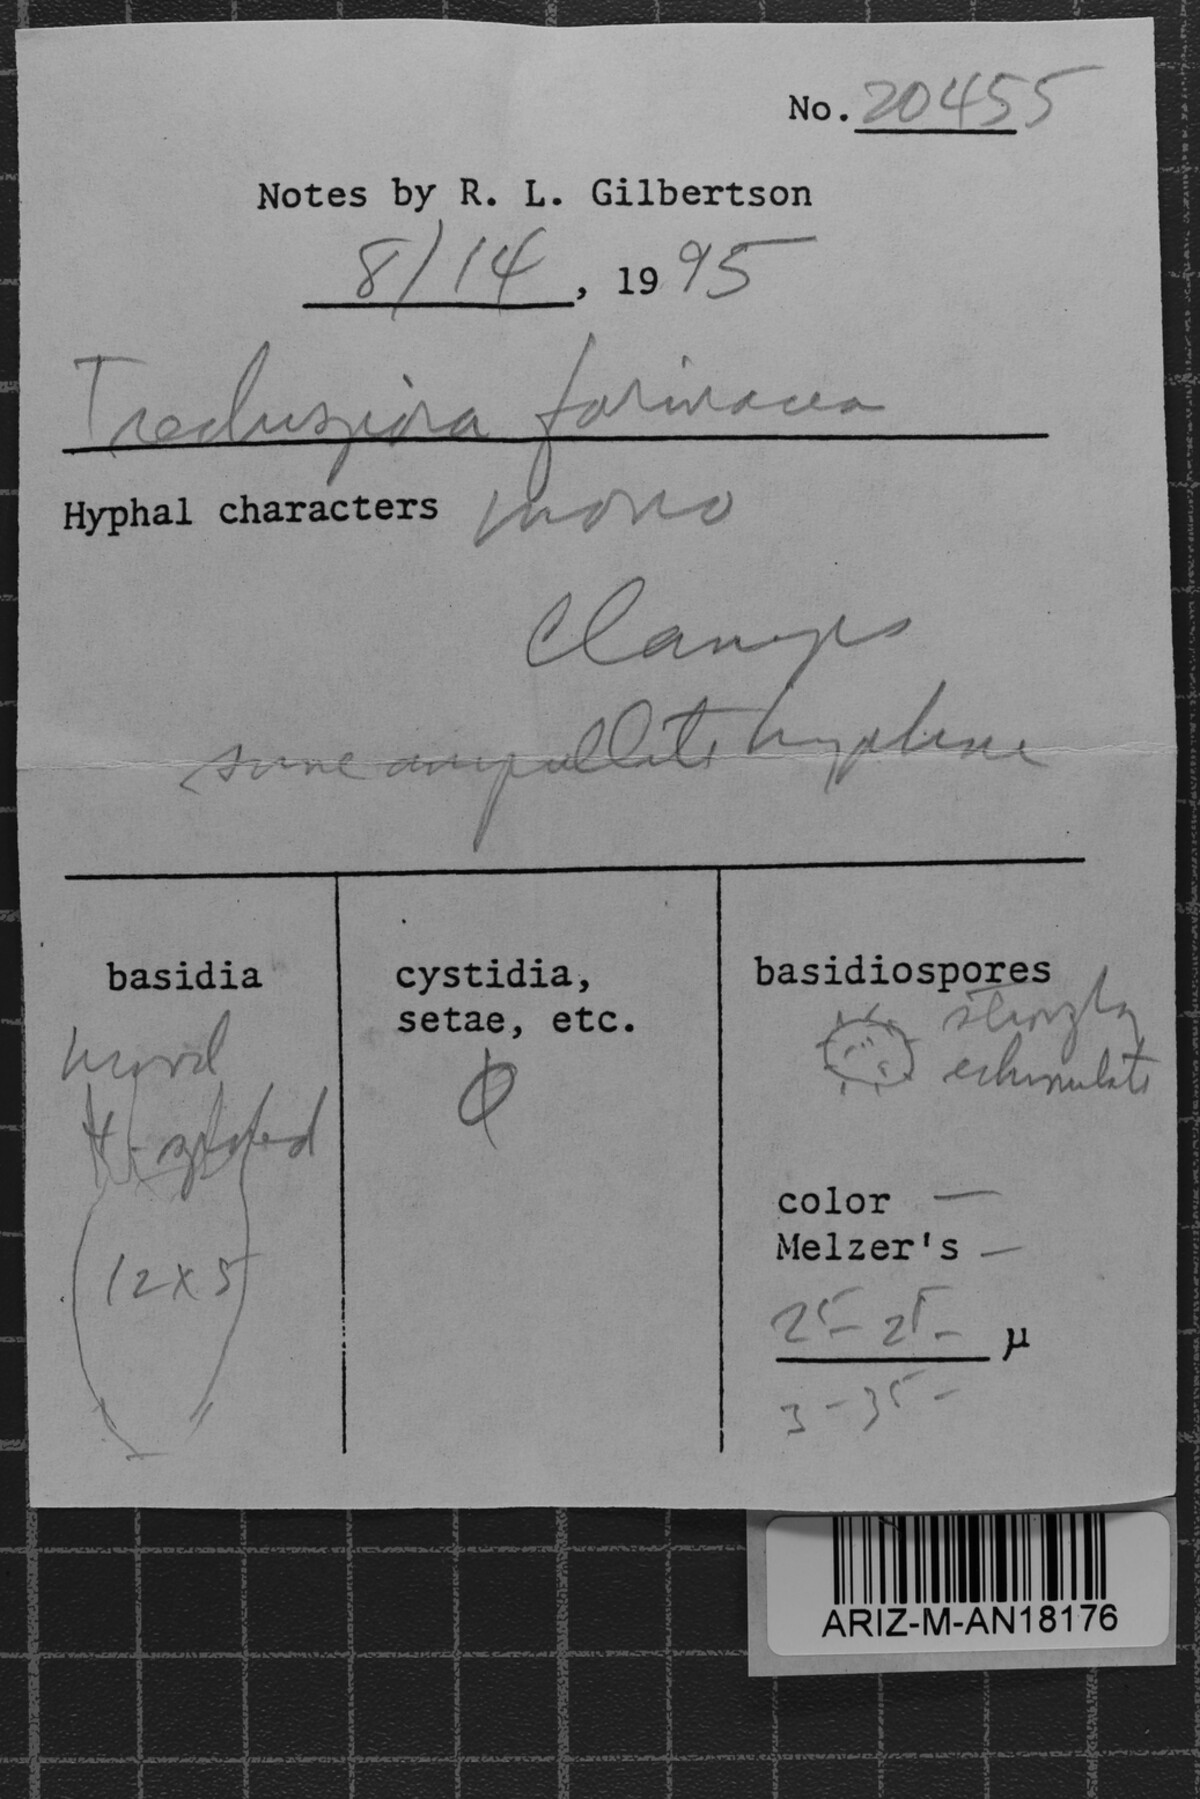 No. 20455
Notes by R. L. Gilbertson
8/14, 1995
Trechispora farinacea
Hyphal characters mono
Clamps
some ampullate hyphae
basidia
cystidia,
setae, etc.
basidiospores
strongly
echinulate
Ø
4-
12 x 5
color —
Melzer's —
25- 25- µ
3-35-
ARIZ-M-AN18176